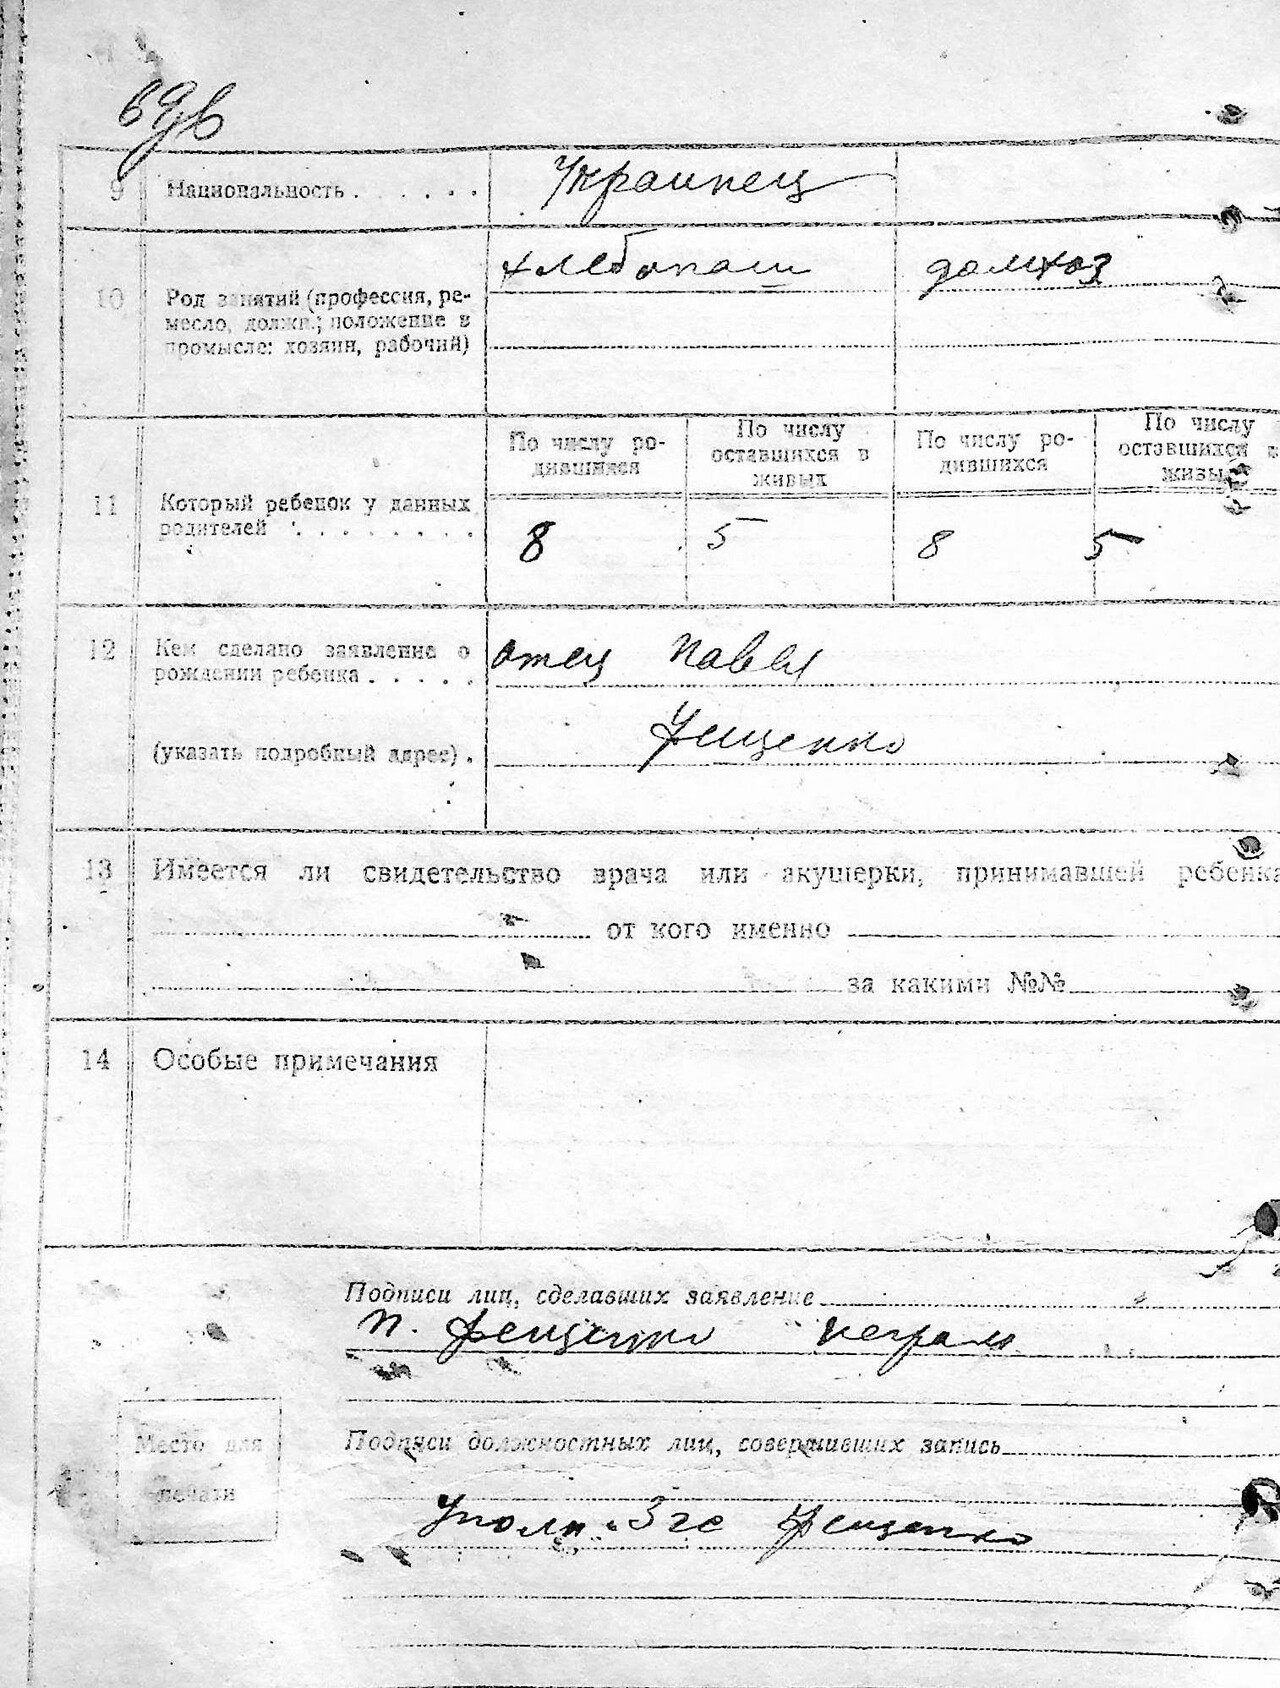 69в
9 Национальность . . . . . . Украинец
хлебопаш домхоз
10 Род занятий (профессия, ре-
месло, должн.; положение в
промысле: хозяин, рабочий)
По числу ро-
дившихся
По числу
оставшихся в
живых
По числу ро-
дившихся
По числу
оставшихся в
живых
11 Который ребенок у данных
родителей . . . . . . . .
8 5 8 5
12 Кем сделано заявление о
рождении ребенка . . . . .
отец Павел
Фещенко
(указать подробный адрес) .
13 Имеется ли свидетельство врача или акушерки, принимавшей ребенка
от кого именно
за какими №№
14 Особые примечания
Подписи лиц, сделавших заявление
П. Фещенко неграм
Место для
печати
Подписи должностных лиц, совершивших запись
Уполн. Загс Фещенко